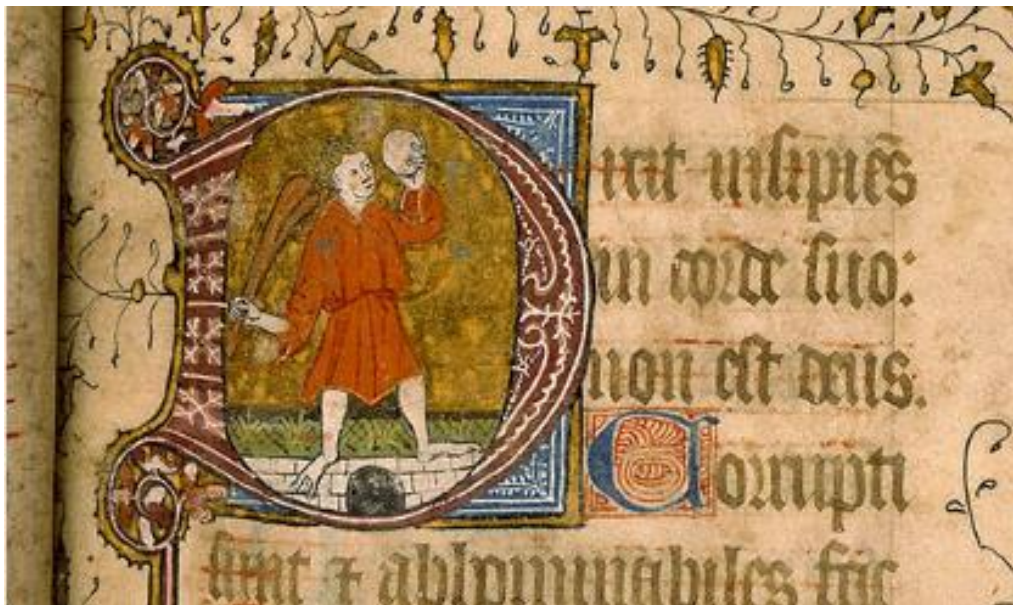 Dixit insipiēs
in corde suo:
non est deus.
Corrupti
sunt ⁊ abhominabiles